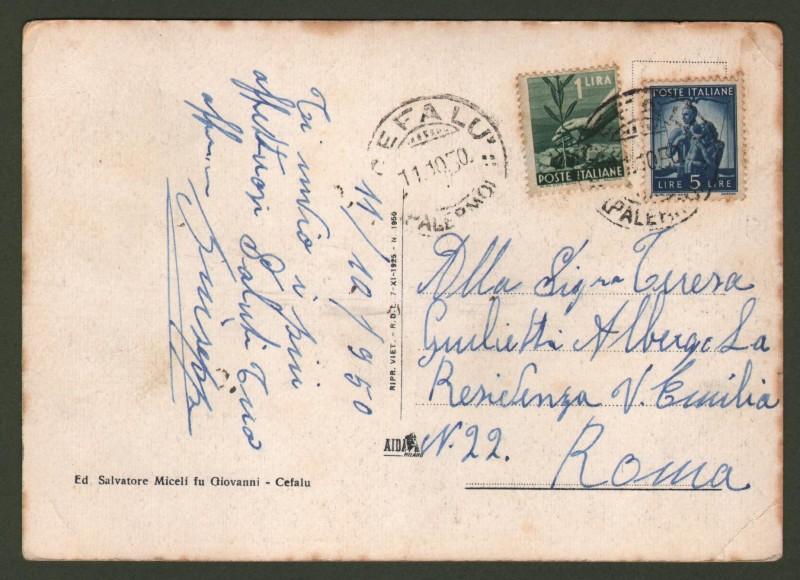 Ti invio i più
affettuosi Saluti Tuo
Giuseppe
11/10/950
CEFALU'
11.10.50.
(PALERMO)
1 LIRA
POSTE ITALIANE
POSTE ITALIANE
LIRE 5 LIRE
10.50
(PALERM
RIPR. VIET. - R.D.L. 7-XI-1925 - N. 1950
Alla Sigra Teresa
Giulietti Albergo La
Residenza V. Emilia
N. 22. Roma
AIDA
MILANO
Ed. Salvatore Miceli fu Giovanni - Cefalu